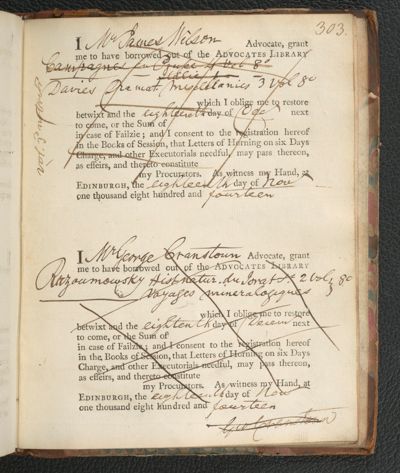 303.
I Mr James Wilson Advocate, grant
me to have borrowed out of the ADVOCATES LIBRARY
Davies Dramat. Miscellanies 3 Vol 8o
which I oblige me to restore
betwixt and the eighteenth day of Decr next
to come, or the Sum of
in case of Failzie; and I consent to the registration hereof
in the Books of Session, that Letters of Horning on six Days
Charge, and other Executorials needful, may pass thereon,
as effeirs, and thereto constitute
my Procurators. As witness my Hand, at
EDINBURGH, the eighteenth day of Novr
one thousand eight hundred and fourteen
I Mr George Cranstoun Advocate, grant
me to have borrowed out of the ADVOCATES LIBRARY
Razoumowsky Hist. Natur. du Jorat &c 2 Vol 8o
Voyages mineralogiques
which I oblige me to restore
betwixt and the eighteenth day of Decem next
to come, or the Sum of
in case of Failzie; and I consent to the registration hereof
in the Books of Session, that Letters of Horning on six Days
Charge, and other Executorials needful, may pass thereon,
as effeirs, and thereto constitute
my Procurators. As witness my Hand, at
EDINBURGH, the eighteenth day of Novr
one thousand eight hundred and fourteen
Geo Cranstoun